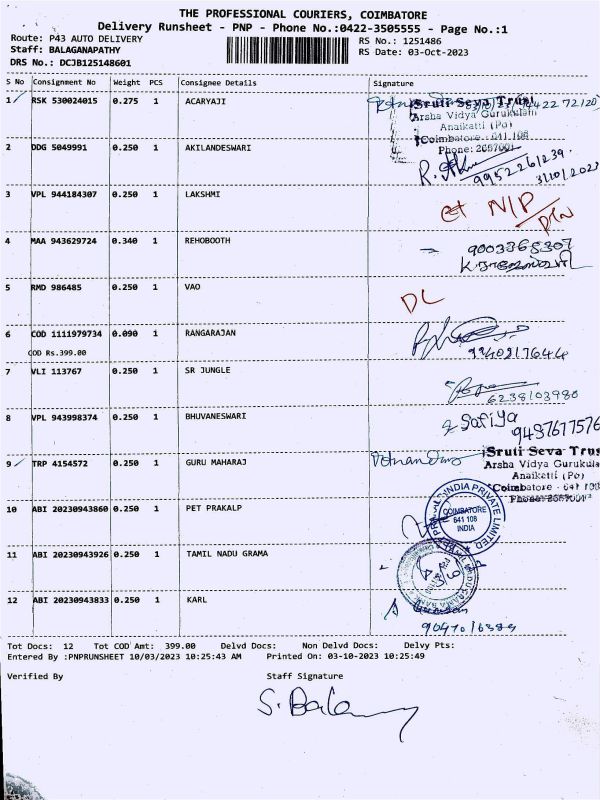 THE PROFESSIONAL COURIERS, COIMBATORE
Delivery Runsheet - PNP - Phone No.:0422-3505555 - Page No.:1
Route: P43 AUTO DELIVERY
RS No.: 1251486
Staff: BALAGANAPATHY
RS Date: 03-Oct-2023
DRS No.: DCJB125148601
S No Consignment No Weight PCS Consignee Details Signature
1 RSK 530024015 0.275 1 ACARYAJI
Sruti Seva Trust
Arsha Vidya Gurukulam
Anaikatti (Po)
Coimbatore - 641 108
Phone: 2657001
2 DDG 5049991 0.250 1 AKILANDESWARI
9952261239
31/10/2023
3 VPL 944184307 0.250 1 LAKSHMI
N/P
4 MAA 943629724 0.340 1 REHOBOOTH
9003368307
5 RMD 986485 0.250 1 VAO
DL
6 COD 1111979734 0.090 1 RANGARAJAN
COD Rs.399.00
9940217644
7 VLI 113767 0.250 1 SR JUNGLE
6238103980
8 VPL 943998374 0.250 1 BHUVANESWARI
Safiya
9437617576
9 TRP 4154572 0.250 1 GURU MAHARAJ
Sruti Seva Trus
Arsha Vidya Gurukula
Anaikatti (Po)
Coimbatore - 641 108
Phone: 2657001
10 ABI 20230943860 0.250 1 PET PRAKALP
INDIA PRIVATE LIMITED
COIMBATORE
641 108
INDIA
11 ABI 20230943926 0.250 1 TAMIL NADU GRAMA
12 ABI 20230943833 0.250 1 KARL
Tot Docs: 12 Tot COD Amt: 399.00 Delvd Docs: Non Delvd Docs: Delvy Pts:
Entered By :PNPRUNSHEET 10/03/2023 10:25:43 AM Printed On: 03-10-2023 10:25:49
Verified By Staff Signature
S. Bala